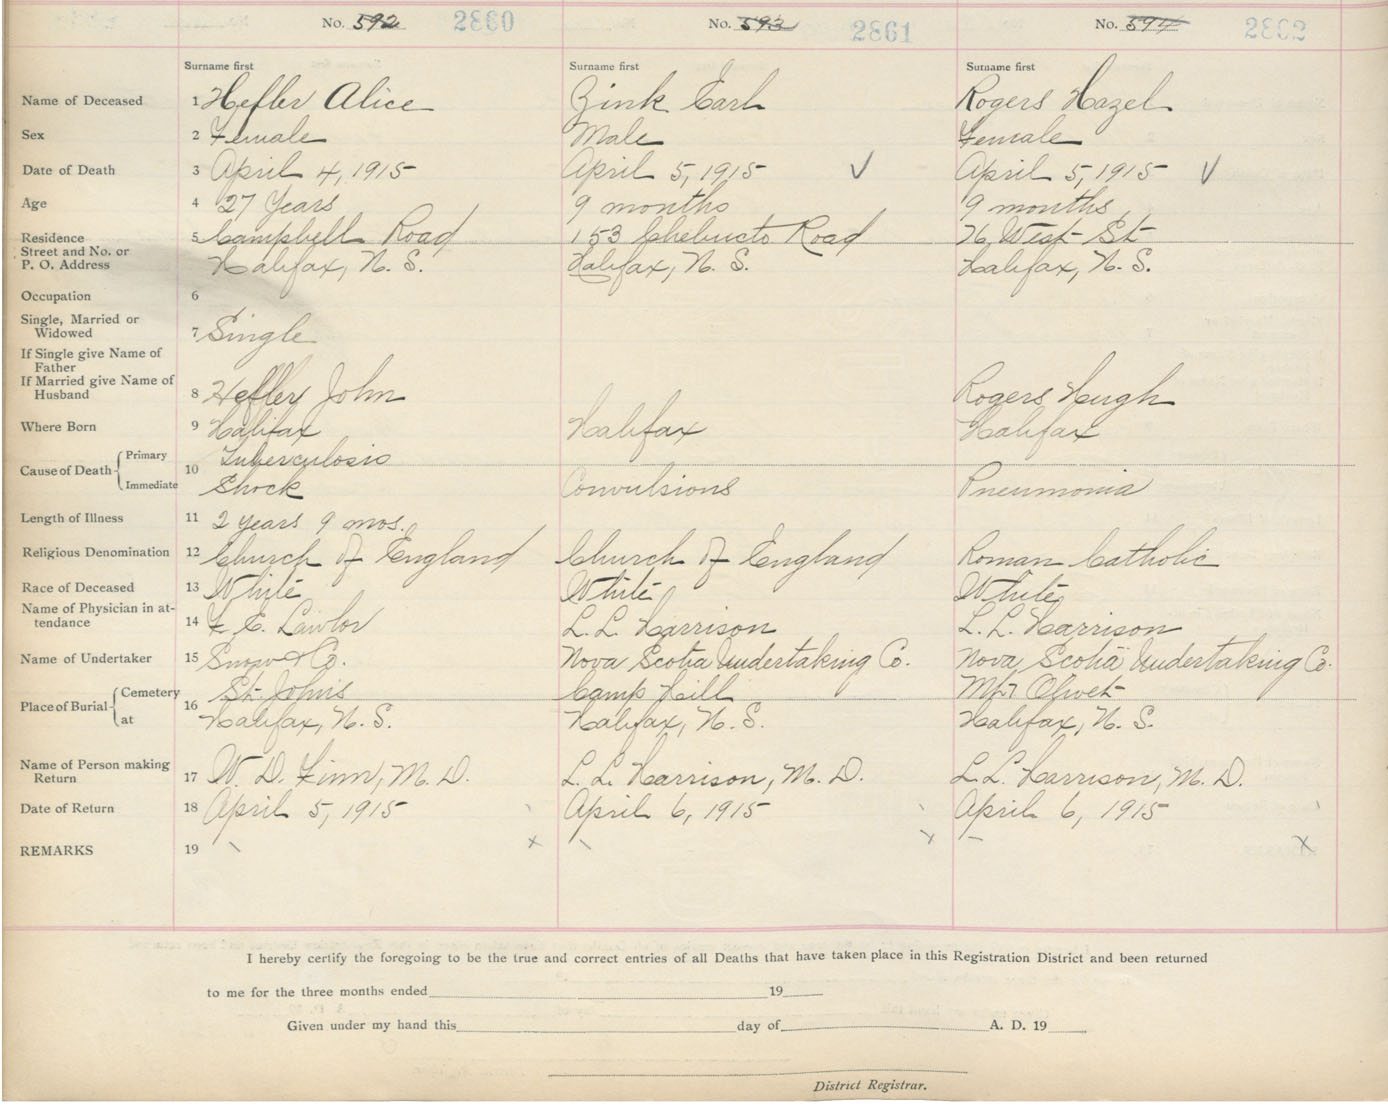 No. 592 2860 No. 593 2861 No. 594 2862
Surname first Surname first Surname first
Name of Deceased 1 Hefler Alice Zink Earl Rogers Hazel
Sex 2 Female Male Female
Date of Death 3 April 4, 1915 April 5, 1915 ✓ April 5, 1915 ✓
Age 4 27 Years 9 months 9 months
Residence 5 Campbell Road 153 Chebucto Road 76 West St
Street and No. or
P. O. Address Halifax, N. S. Halifax, N. S. Halifax, N. S.
Occupation 6
Single, Married or
Widowed 7 Single
If Single give Name of
Father
If Married give Name of
Husband 8 Hefler John Rogers Hugh
Where Born 9 Halifax Halifax Halifax
Primary Tuberculosis
Cause of Death 10
Immediate Shock Convulsions Pneumonia
Length of Illness 11 2 years 9 mos.
Religious Denomination 12 Church of England Church of England Roman Catholic
Race of Deceased 13 White White White
Name of Physician in at-
tendance 14 F. E. Lawlor L. L. Harrison L. L. Harrison
Name of Undertaker 15 Snow & Co. Nova Scotia Undertaking Co. Nova Scotia Undertaking Co.
Cemetery St. John's Camp Hill Mt Olivet
Place of Burial 16
at Halifax, N. S. Halifax, N. S. Halifax, N. S.
Name of Person making
Return 17 W. D. Finn, M. D. L. L. Harrison, M. D. L. L. Harrison, M. D.
Date of Return 18 April 5, 1915 April 6, 1915 April 6, 1915
REMARKS 19 x x x
I hereby certify the foregoing to be the true and correct entries of all Deaths that have taken place in this Registration District and been returned
to me for the three months ended 19
Given under my hand this day of A. D. 19
District Registrar.